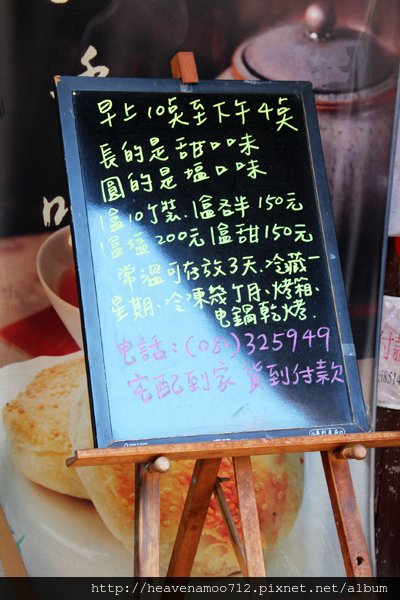 早上10奌至下午4奌
長的是甜口味
圓的是塩口味
1盒10个裝.1盒各半150元
1盒塩200元1盒甜150元
常溫可存放3天、冷藏一
星期、冷凍幾个月、烤箱、
电鍋乾烤.
电話:(08)325949
宅配到家 貨到付款
http://heavenamoo712.pixnet.net/album